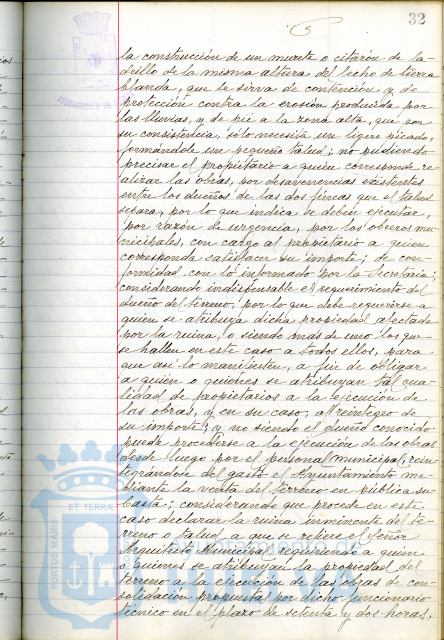 32
la construcción de un murete o citarón de la-
drillo de la misma altura del lecho de tierra
blanda, que le sirva de contención y de
protección contra la erosión producida por
las lluvias, y de pie a la zona alta, que por
su consistencia, sólo necesita un ligero picado,
formándole un pequeño talud; no pudiendo
precisar el propietario a quien corresponde re-
alizar las obras, por desavenencias existentes
entre los dueños de las dos fincas que el talud
separa, por lo que indica se deben ejecutar,
por razón de urgencia, por los obreros mu-
nicipales, con cargo al propietario a quien
corresponda satisfacer su importe; de con-
formidad con lo informado por la Secretaría;
considerando indispensable el requerimiento del
dueño del terreno, por lo que debe requerirse a
quien se atribuya dicha propiedad afectada
por la ruina, o siendo mas de uno los que
se hallen en este caso a todos ellos, para
que así lo manifiesten, a fin de obligar
a quien o quienes se atribuyan tal cua-
lidad de propietarios a la ejecución de
las obras, y en su caso, al reintegro de
su importe; y no siendo el dueño conocido
puede procederse a la ejecución de las obras
desde luego por el personal municipal, rein-
tegrándose del gasto el Ayuntamiento me-
diante la venta del terreno en pública su-
basta; considerando que procede en este
caso declarar la ruina inminente del te-
rreno o talud a que se refiere el Señor
Arquitecto Municipal requiriendo a quien
o quienes se atribuyan la propiedad del
terreno a la ejecución de las obras de con-
solidación propuestas por dicho funcionario
técnico en el plazo de setenta y dos horas,
PORTUS MARIS
ET TERRA